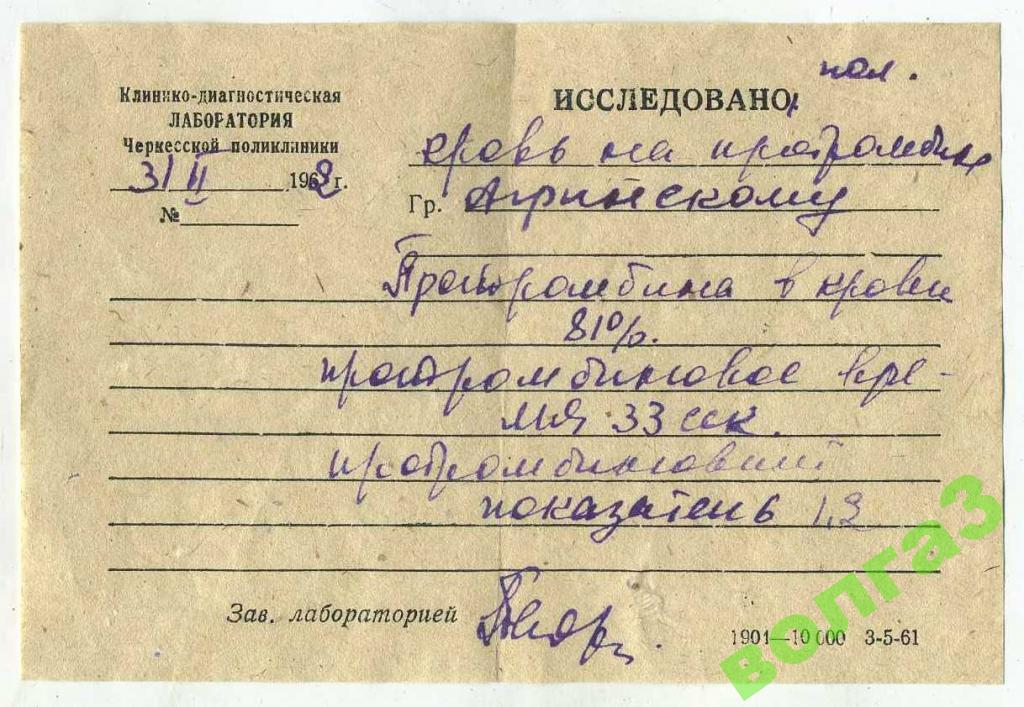 Клинико-диагностическая
ЛАБОРАТОРИЯ
Черкесской поликлиники
31 II 1962 г.
№
пол.
ИССЛЕДОВАНО
кровь на протромбин
Гр. Агринскому
Протромбина в крови
81%.
протромбиновое вре-
мя 33 сек.
протромбиновый
показатель 1,2
Зав. лабораторией
1901—10 000 3-5-61
волга3